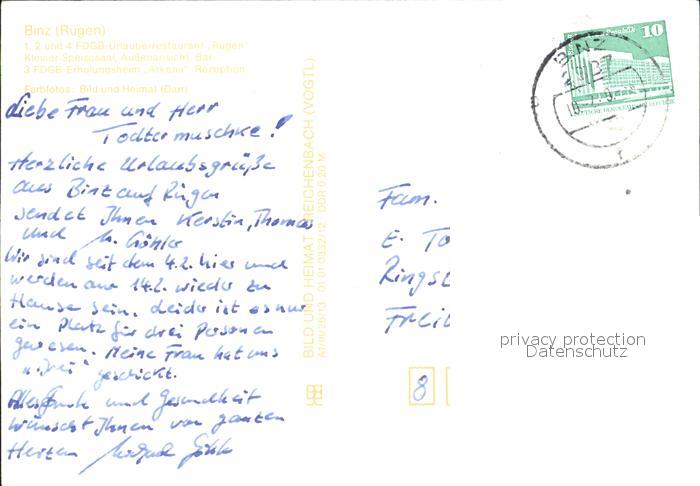 Binz (Rügen)
1, 2 und 4 FDGB-Urlauberrestaurant „Rügen"
Kleiner Speisesaal, Außenansicht, Bar
3 FDGB-Erholungsheim „Arkona" Rezeption
Farbfotos: Bild und Heimat (Darr)
Liebe Frau und Herr
Todtermuschke!
Herzliche Urlaubsgrüße
aus Binz auf Rügen
sendet Ihnen Kerstin, Thomas
und
Wir sind seit dem 4.2. hier und
werden am 14.2. wieder zu
Hause sein. Leider ist es nur
ein Platz für drei Personen
gewesen. Meine Frau hat uns
„drei" geschickt.
Alles Gute und Gesundheit
wünscht Ihnen von ganzen
Herzen
BILD UND HEIMAT REICHENBACH (VOGTL)
01 01 0332/12 DDR 0,20 M
10
BINZ
Fam.
E. To
Rings
Frei
8
privacy protection
Datenschutz